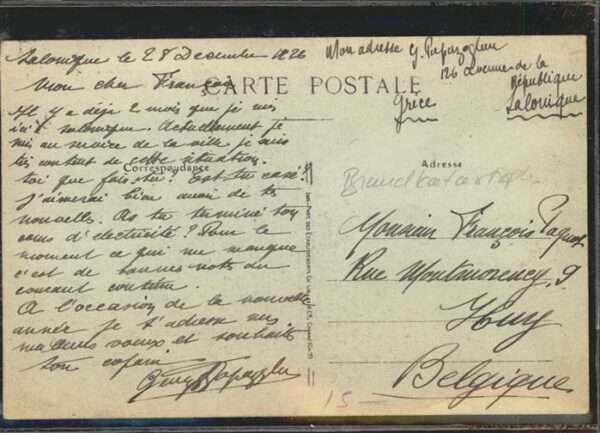 Salonique le 28 Decembre 1926
Mon adresse G. Papazoglou
126 Avenue de la
République
Salonique
Grèce
Mon cher François
CARTE POSTALE
Il y a déja 2 mois que je suis
ici à Salonique. Actuellement je
suis au service de la ville je suis
très content de cette situation.
Correspondance
Adresse
toi que fais-tu? Est tu casé?
J'aimerai bien avoir de tes
nouvelles. As tu terminé ton
cours d'électricité? Pour le
moment ce qui me manque
c'est de bonnes notes du
courant continu.
A l'occasion de la nouvelle
année je t'adresse mes
meilleurs voeux et souhaits
ton copain
Papazoglou
Monsieur François Paquot
Rue Montmorency, 9
Huy
Belgique
15 -